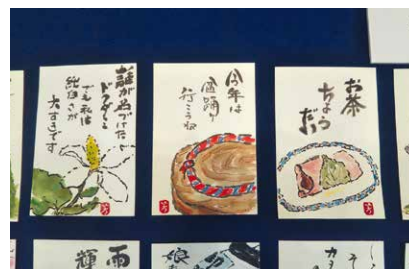 誰が名づけた
ドクダミ
でも私は
純白さが
大すきです
今年は
盆踊り
行こうね
お茶
ちょう
だい
雨
輝
娘